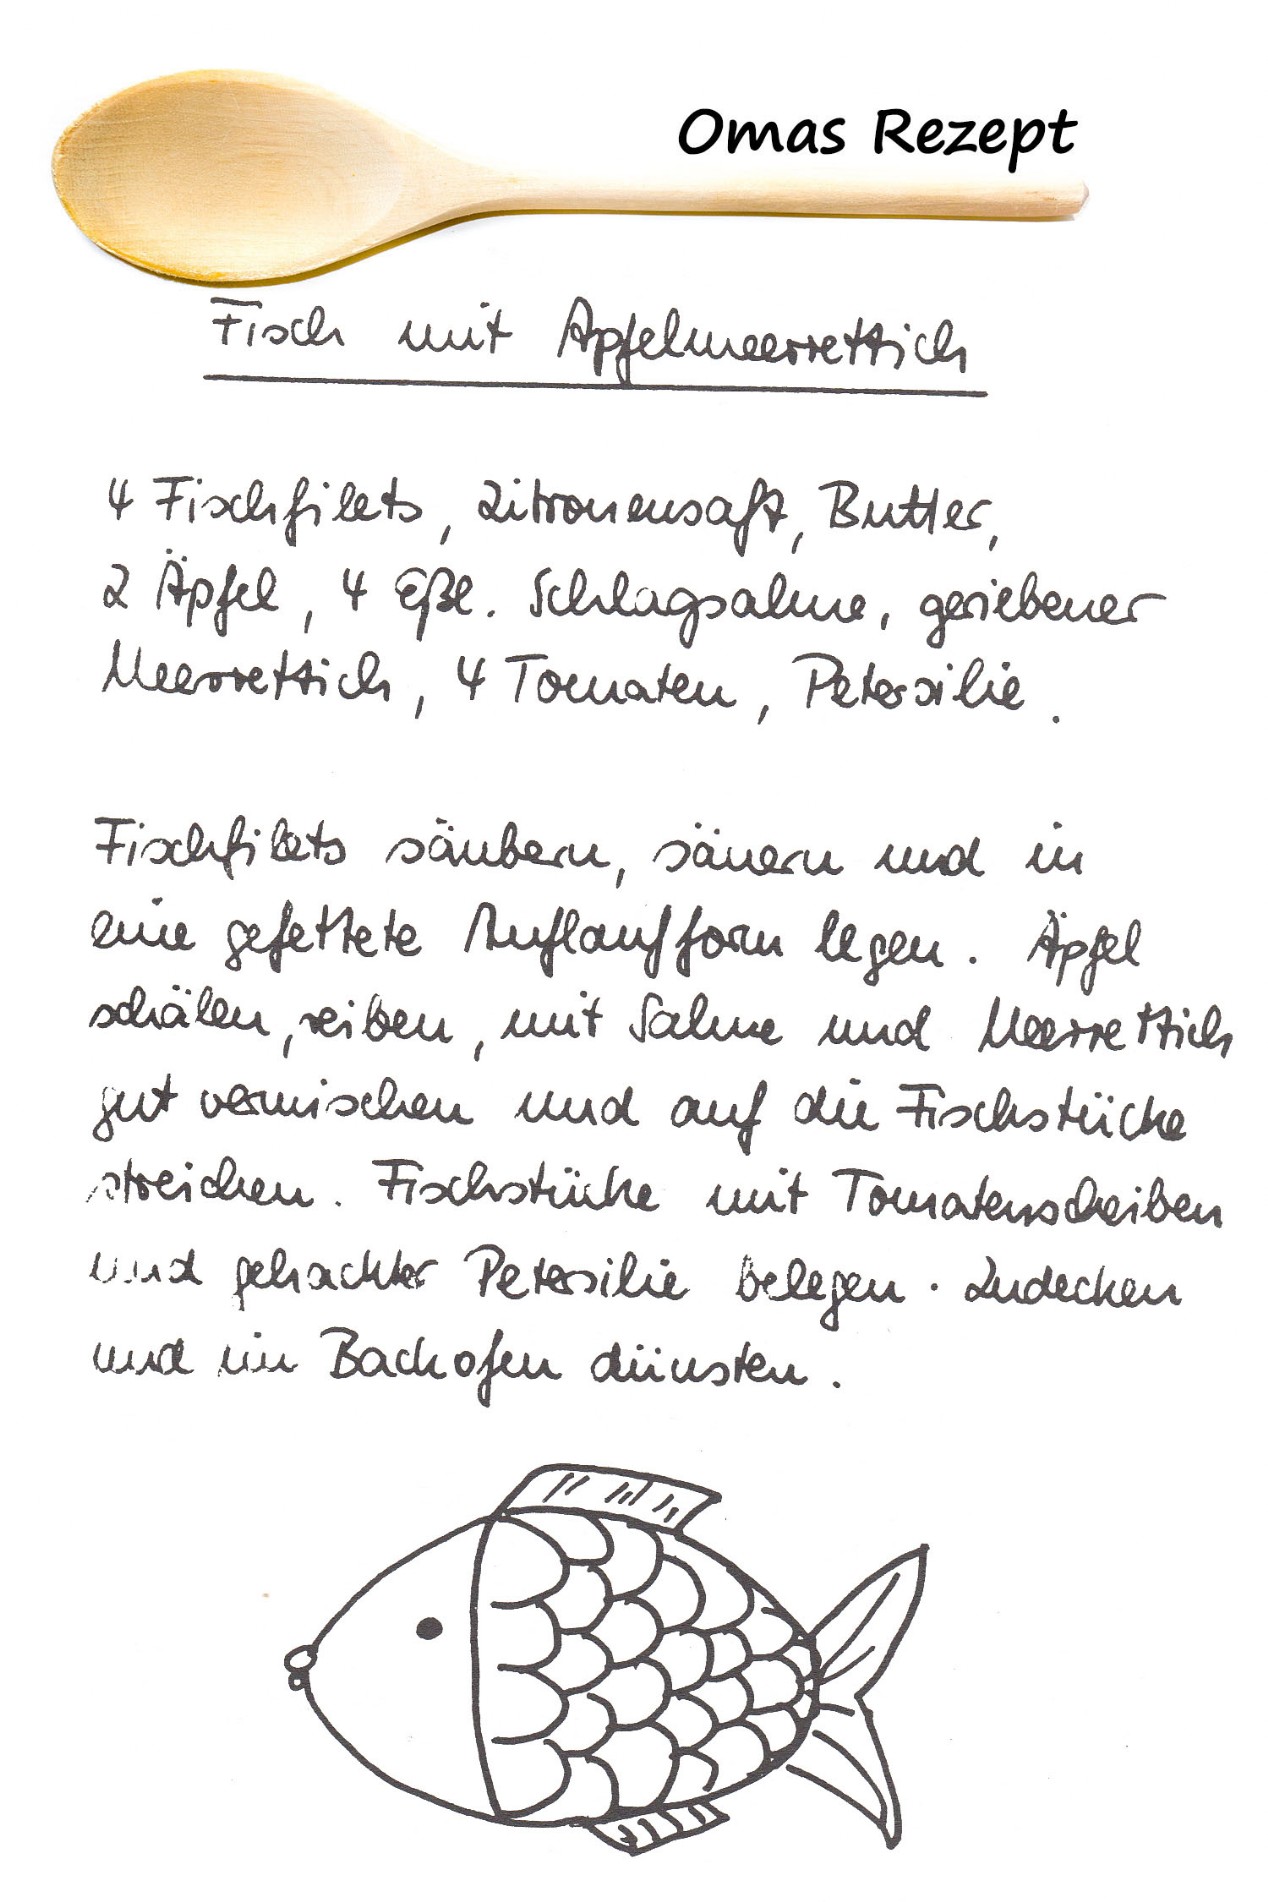 Omas Rezept
Fisch mit Apfelmeerrettich
4 Fischfilets, Zitronensaft, Butter,
2 Äpfel, 4 Eßl. Schlagsahne, geriebener
Meerrettich, 4 Tomaten, Petersilie.
Fischfilets säubern, säuern und in
eine gefettete Auflaufform legen. Äpfel
schälen, reiben, mit Sahne und Meerrettich
gut vermischen und auf die Fischstücke
streichen. Fischstücke mit Tomatenscheiben
und gehackter Petersilie belegen. Zudecken
und im Backofen dünsten.